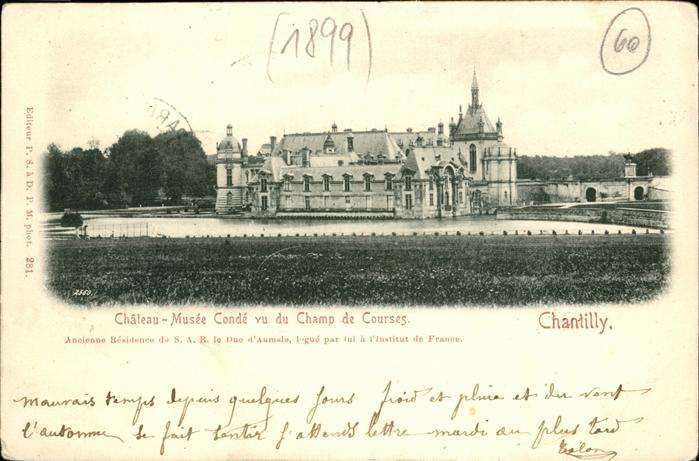 [1899]
60
Editeur P. S. à D. P. M. phot. 281.
2560
Château-Musée Condé vu du Champ de Courses.
Chantilly.
Ancienne Résidence de S. A. R. le Duc d'Aumale, l-gué par lui à l'Institut de France.
mauvais temps depuis quelques jours froid et pluie et du vent
l'automne se fait sentir j'attends lettre mardi au plus tard